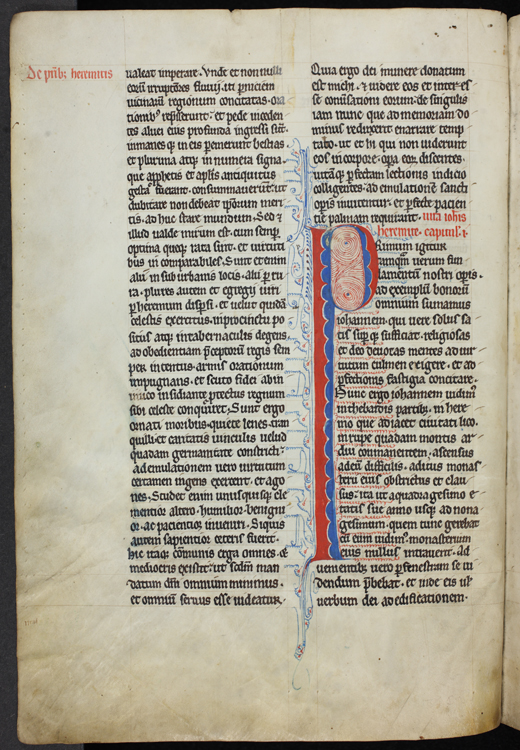 De patrib; heremitis
ualeat imperare. Vnde et non nulli
eoru irruptores fluuij. ut pniciem
uicinaru regionum concitatas. ora
tionib; represserunt. et pede
aluei eius profunda ingressi sunt.
inmanes q in eis pemerunt bestias
et plurima atq; in numera signa.
que apphetis et aplis antiquitus
gesta fuerant. consummauerut. ut
dubitare non debeat ipsorum meri
tis. ad huc stare mundum. Sed
illud ualde mirum est. cum semp
optima queq; rara sint. et uirtuti
bus in comparabiles. Sunt et enim
alii in sub urbanis locis. alii p ru
ra. plures autem et egregij uiri
p heremum dispsi. et uelut quida
celestis exercitus. in procinctu po
situs atq; in tabernaculis degens.
ad obedientiam pceptoru regis sem
per intentus. armis orationum
inpugnans. et scuto fidei ab in
imico in sidiante ptectus regnum
sibi celeste conquiret. Sunt ergo
ornati moribus. quiete lenes. tran
quilli. et caritatis uinculis uelud
quadam germanitate constricti.
Ad emulationem uero uirtutum
certamen ingens exercent. et ago
nes. Studet enim unusquisq; ele
mentior altero. humilior. benigni
or. ac pacientior inueniri. Siquis
autem sapientior ceteris fuerit.
hic itaq; comunis erga omnes. et
mediocris existit. ut scdm man
datum dni omnium minimus.
et omniu seruus esse uideatur.
Quia ergo dei munere donatum
est michi. et uidere eos et inter es
se conuersationi eorum. de singulis
iam nunc que ad memoriam do
minus reduxerit. enarrare temp
tabo. ut et hi qui non uiderunt
eos in corpore. opa eor. discentes.
uitaq; pfectam lectionis indicio
colligentes. ad emulatione sancti
opis inuitentur. et pfecte pacien
tie palmam requirant. uita iohis
heremite. capitul. i.
Primum igitur
tanqm uerum fun
damentu nostri opis.
ad exemplu bonoru
omnium sumamus
iohannem. qui uere solus sa
tis supq; sufficiat. religiosas
et deo deuotas mentes ad uir
tutum culmen erigere. et ad
pfectionis fastigia concitare.
Hunc ergo iohannem uidimus
in thebaidis partib;. in here
mo que adiacet ciuitati lico.
in rupe quadam montis ar
dui conmanentem. ascensus
ad eu difficilis. aditus monas
terij eius obstrictus et clau
sus. ita ut a quadragesimo e
tatis sue anno usq; ad nona
gesimum. quem tunc gerebat
cu eum uidim;. monasterium
eius nullus intrauerit. Ad
uenientib; uero p fenestram se ui
dendum phebat. et inde eis ul
uerbum dei ad edificationem.